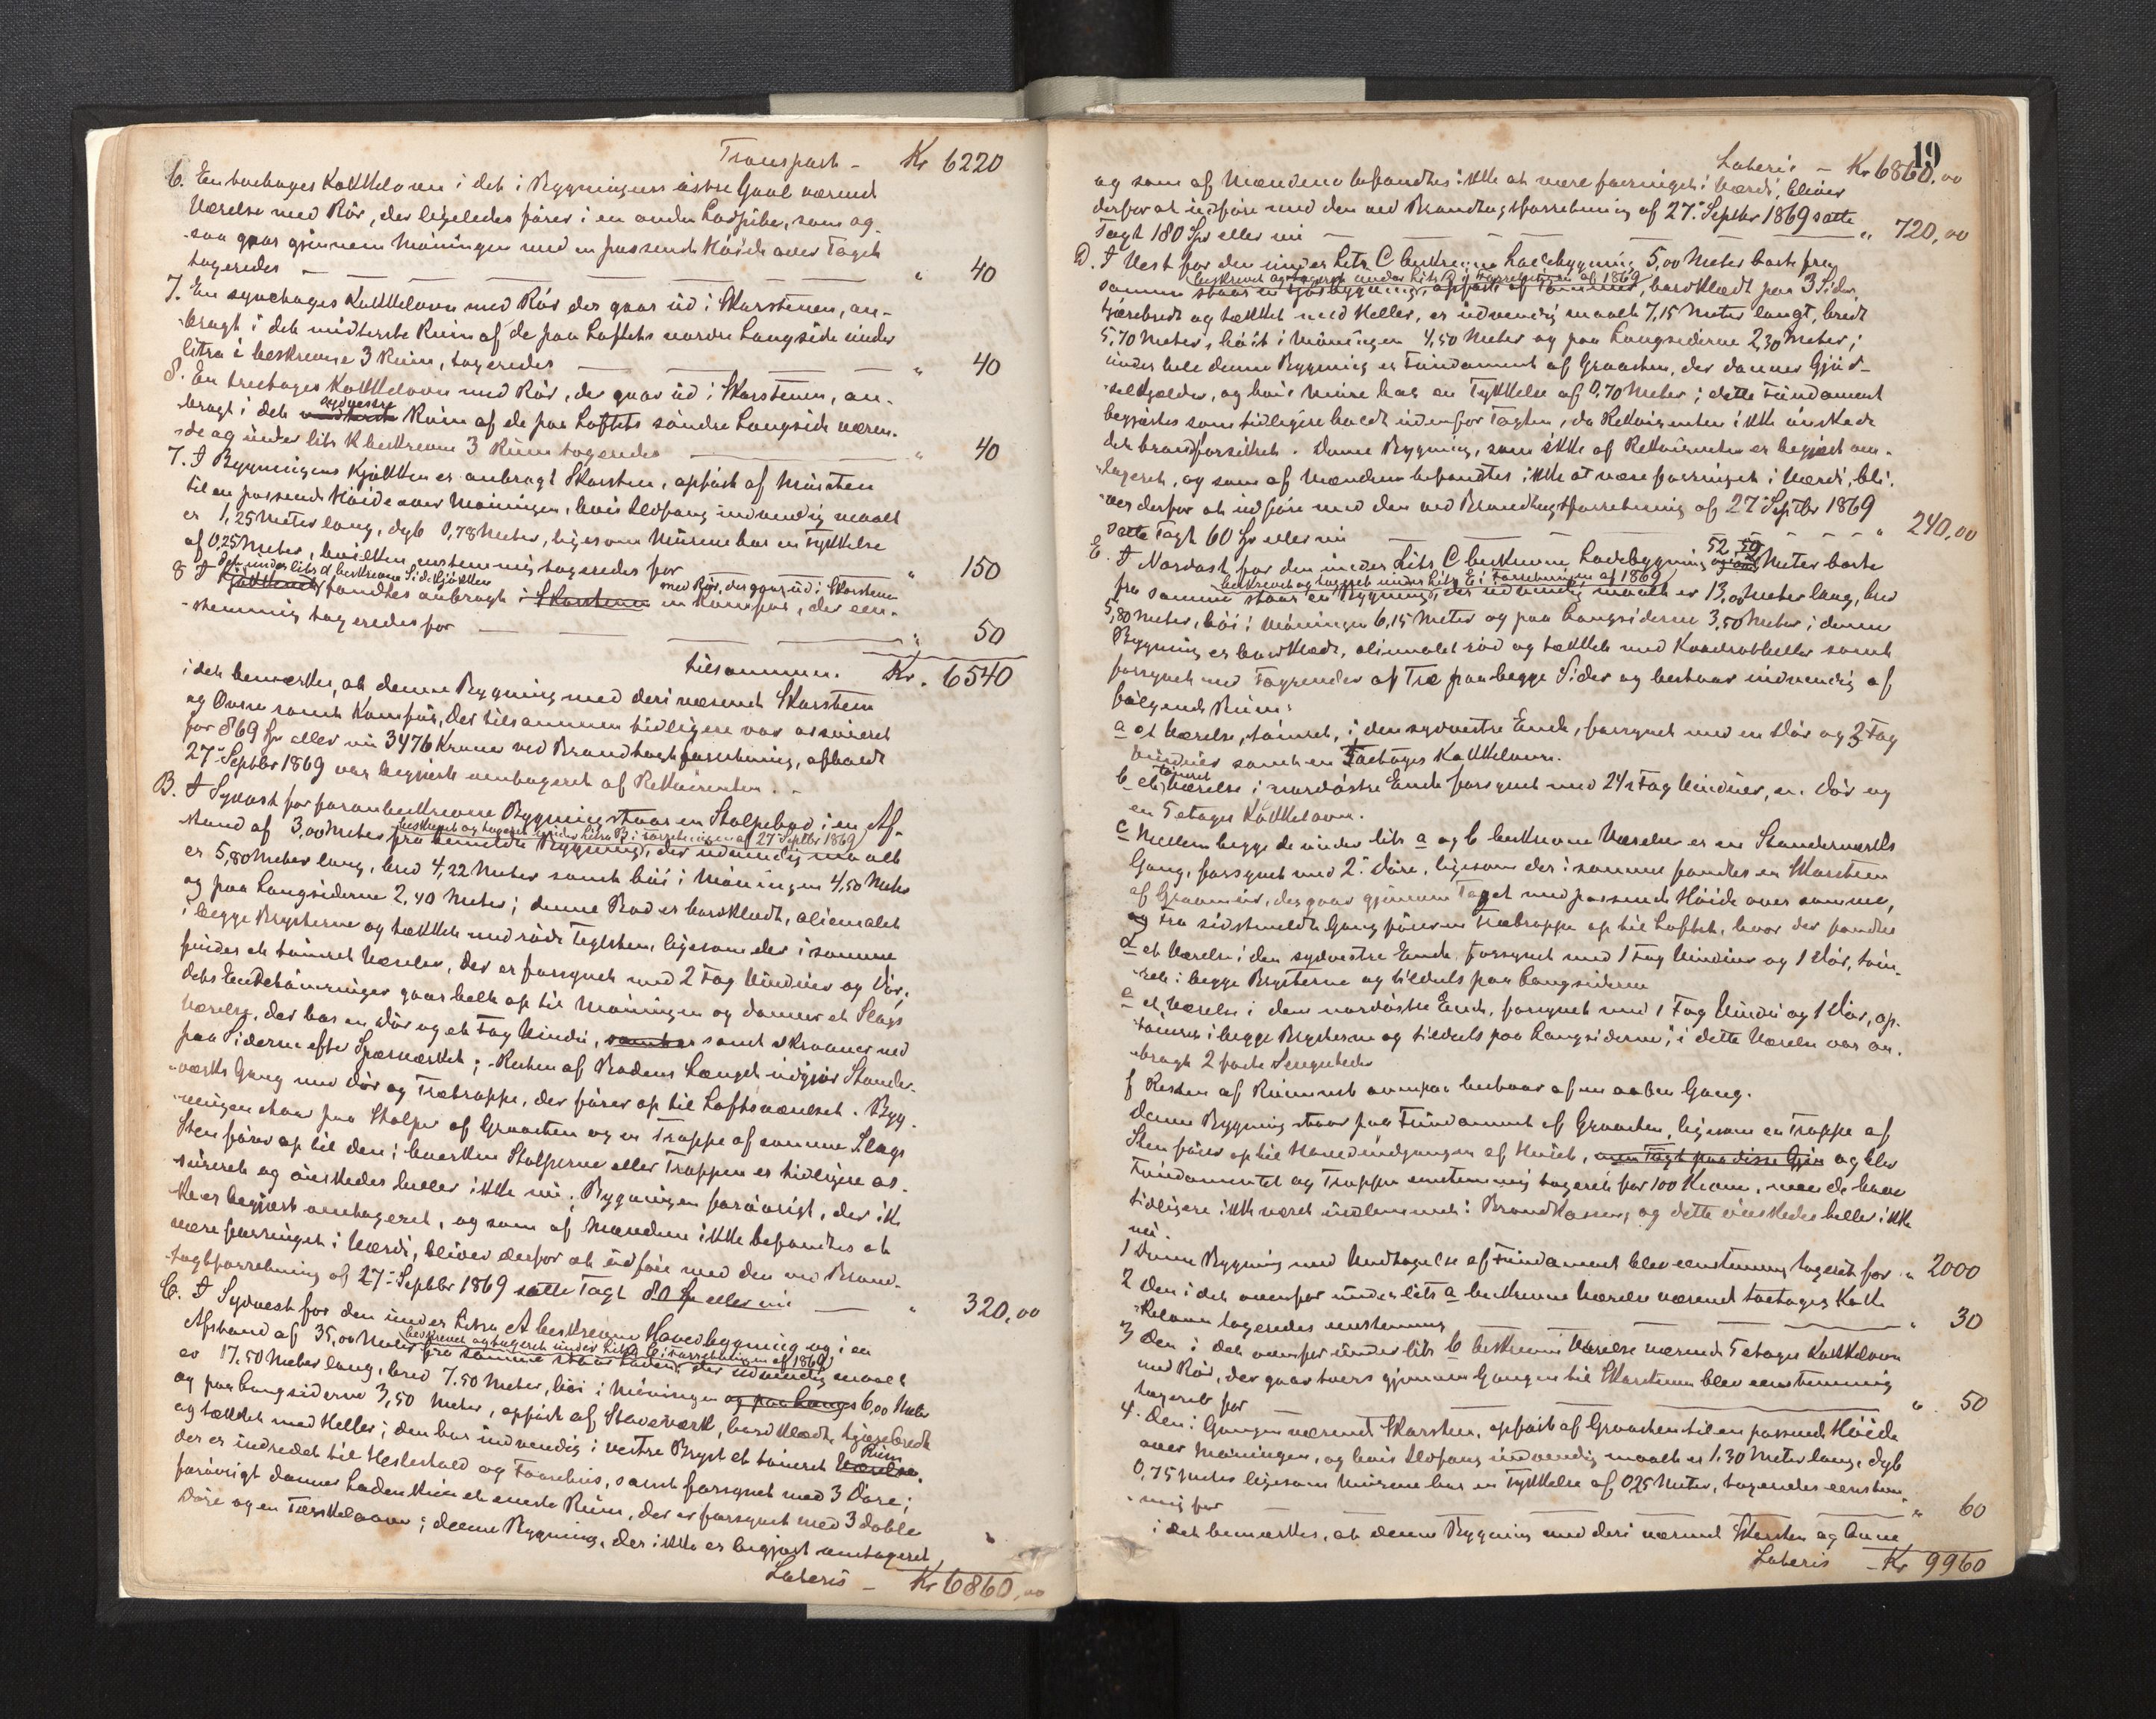 Transport - Kr 6220
6. En toetages Kakkelovn i det i Bygningens østre Gavl værende
Værelse med Rør, der ligeledes fører i en anden Ladpibe, som og-
-saa gaar gjennem Møningen med en passende Høide over Taget
tageredes — " 40
7. En syvetages Kakkelovn med Rør der gaar ud i Skorstenen, an-
-bragt i det midterste Rum af de paa Loftets nordre Langside under
litra i beskrevne 3 Rum, tageredes — " 40
8. En treetages Kakkelovn med Rør, der gaar ud i Skorstenen, an-
sydvestre
-bragt i det midterste Rum af de paa Loftets søndre Langside væren-
-de og under litr k beskrevne 3 Rum tageredes — " 40
7. I Bygningens Kjøkken er anbragt Skorsten, opført af Mursten
til en passende Høide over Møningen, hvis Ildfang indvendig maalt
er 1,25 Meter lang, dyb 0,78 Meter, ligesom Murene har en Tykkelse
af 0,25 Meter, hvilken enstemmig tageredes for — " 150
det under litr d beskrevne Sidekjøkken med Rør, der gaar ud i Skorstenen
8 I Kjøkkenet fandtes anbragt i Skorstenen en Komfur, der een-
-stemmig tageredes for — " 50
tilsammen. Kr. 6540
i det bemærkes, at denne Bygning med deri værende Skorsten
og Ovne samt Komfur, der tilsammen tidligere var assureret
for 869 Spd eller nu 3476 Kroner ved Brandtagstforretning, afholdt
27de Septbr 1869 var begjært omtageret af Rekvirenten. -
B. I Sydost for foranbeskrevne Bygning staar en Stolpebod i en Af-
beskrevet og tageret under Litra B i Forretningen af 27de Septbr 1869
stand af 3,00 Meter fra bemeldte Bygning, der udvendig maalt
er 5,80 Meter lang, bred 4,22 Meter samt høi i Møningen 4,50 Meter
og paa Langsiderne 2,40 Meter; denne Bod er bordklædt, oliemalet
i begge Brysterne og tækket med røde Teglsten, ligesom der i samme
findes et tømret Værelse, der er forsynet med 2 Fag Vinduer og Dør;
dets Endetømringer gaar helt op til Møningen og danner et Slags
Værelse, der har en Dør og et Fag Vindu, samt skraaner ned
paa Siderne efter Sperreværket; Resten af Bodens Længde udgjør Stander-
-værks Gang med Dør og Trætrappe, der fører op til Loftsværelset. Byg-
-ningen staar paa Stolper af Graasten og en Trappe af samme Slags
Sten fører op til den; hverken Stolperne eller Trappen er tidligere as-
-sureret og ønskedes heller ikke nu; Bygningen forøvrigt, der ik-
-ke er begjært omtageret, og som af Mændene ikke befandtes at
være forringet i Værdi, bliver derfor at udføre med den ved Brand-
-tagtforretning af 27de Septbr 1869 satte Tagt 80 Sp eller nu — " 320,00
C. I Sydvest for den under Litra A beskrevne Hovedbygning og i en
beskrevet og tageret under Litr C i Forretningen af 1869
Afstand af 35,00 Meter fra samme staar Laden, der udvendig maalt
er 17,50 Meter lang, bred 7,50 Meter, høi i Møningen og paa Langs 6,00 Meter
og paa Langsiderne 3,50 Meter, opført af Staveværk, bordklædt, tjærebredt
og tækket med Heller; den har indvendig i vestre Bryst et tømret Værelse,
Rum
der er indredet til Hestestald og Faarehus, samt forsynet med 3 Døre;
forøvrigt danner Laden kun et eneste Rum, der er forsynet med 3 doble
Døre og en Tærskelaave; denne Bygning, der ikke er begjært omtageret
Lateris - Kr 6860,00
19
Lateris - Kr 6860,00
og som af Mændene befandtes ikke at være forringet i Værdi, bliver
derfor at udføre med den ved Brandtagstforretning af 27de Septbr 1869 satte
Tagt 180 Spd eller nu — " 720,00
D. I Vest for den under Litr C beskrevne Ladebygning 5,00 Meter borte fra
beskrevet og tageret under Litr D i Forretningen af 1869
samme staar en Fjøsbygning, opført af Tømmer, bordklædt paa 3 Sider,
tjærebredt og tækket med Heller, er udvendig maalt 7,15 Meter langt, bredt
5,70 Meter, høit i Møningen 4,50 Meter og paa Langsiderne 2,30 Meter;
under hele denne Bygning er Fundament af Graasten, der danner Gjød-
-selkjælder, og hvis Mure har en Tykkelse af 0,70 Meter; dette Fundament
begjærtes som tidligere holdt udenfor Tagten, da Rekvirenten ikke ønskede
det brandforsikret. Denne Bygning, som ikke af Rekvirenten er begjært om-
-tageret, og som af Mændene befandtes ikke at være forringet i Værdi, bli-
-ver derfor at udføre med den ved Brandtagstforretning af 27de Septbr 1869
satte Tagt 60 Sp eller nu — " 240,00
52,50
E. I Nordost for den under Litr C beskrevne Ladebygning Meter borte
beskrevet og tageret under Litr E i Forretningen af 1869
fra samme staar en Bygning, der udvendig maalt er 13,00 Meter lang, bred
5,80 Meter, høi i Møningen 6,15 Meter og paa Langsiderne 3,50 Meter; denne
Bygning er bordklædt, oliemalet rød og tækket med Kvadratheller samt
forsynet med Tagrender af Træ paa begge Sider og bestaar indvendig af
følgende Rum:
a et Værelse, tømret, i den sydvestre Ende, forsynet med en Dør og 3 Fag
Vinduer samt en Toetages Kakkelovn.
tømret
b et Værelse i nordøstre Ende forsynet med 2½ Fag Vinduer, en Dør og
en 5 etages Kakkelovn.
c Mellem begge de under litr a og b beskrevne Værelser er en Standerværks
Gang, forsynet med 2de Døre, ligesom der i samme fandtes en Skorsten
af Graamur, der gaar gjennem Taget med passende Høide over samme,
og fra sidstmeldte Gang fører en Trætrappe op til Loftet, hvor der fandtes
d et Værelse i den sydvestre Ende, forsynet med 1 Fag Vinduer og 1 Dør, tøm-
-ret i begge Brysterne og tildels paa Langsiderne
e et Værelse i den nordøstre Ende, forsynet med 1 Fag Vindu og 1 Dør, op-
-tømret i begge Brysterne og tildels paa Langsiderne; i dette Værelse var an-
-bragt 2 faste Sengesteder
f Resten af Rummet ovenpaa bestaar af en aaben Gang.
Denne Bygning staar paa Fundament af Graasten, ligesom en Trappe af
Sten fører op til Hovedindgangen af Huset, men Tagt paa disse Gjen og blev
Fundamentet og Trappen enstemmig tageret for 100 Kroner, men de have
tidligere ikke været indlemmet i Brandkassen, og dette ønskedes heller ikke
nu.
1 Denne Bygning med Undtagelse af Fundament blev eenstemmig tageret for " 2000
2 Den i det ovenfor under litr a beskrevne Værelse værende toetages Kak-
-kelovn tageredes eenstemmig — " 30
3 Den i det ovenfor under litr b beskrevne Værelse værende 5 etages Kakkelovn
med Rør, der gaar tvers gjennem Gangen til Skorstenen blev eenstemmig
tageret for — " 50
4. Den i Gangen værende Skorsten, opført af Graasten til en passende Høide
over Møningen, og hvis Ildfang indvendig maalt er 1,30 Meter lang, dyb
0,75 Meter ligesom Murene har en Tykkelse af 0,25 Meter, tageredes eenstem-
-mig for — " 60
i det bemærkes, at denne Bygning med deri værende Skorsten og Ovne
Lateris - Kr 9960